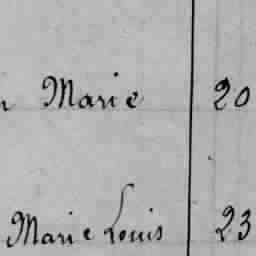 Marie 20
Marie Louis 23